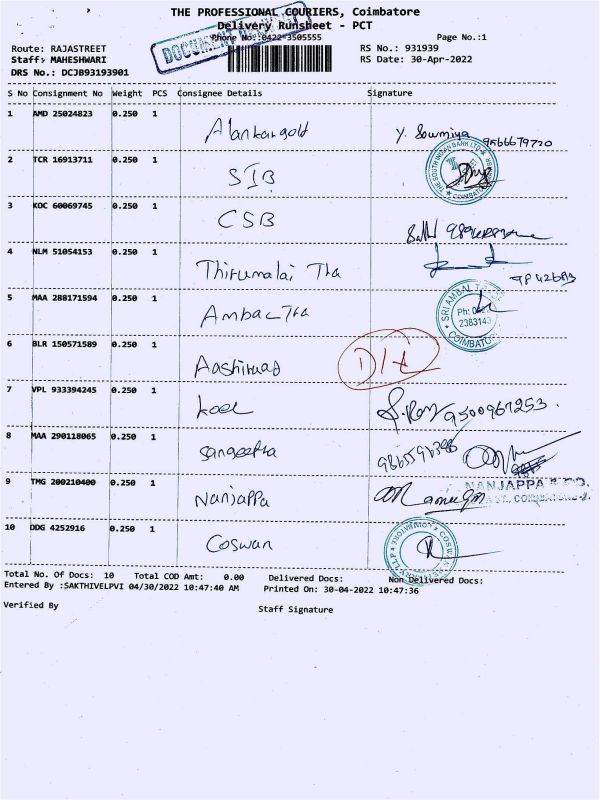 THE PROFESSIONAL COURIERS, Coimbatore
Delivery Runsheet - PCT
Phone No.:0422-3505555
Page No.:1
DOCUMENT
Route: RAJASTREET
RS No.: 931939
Staff: MAHESHWARI
RS Date: 30-Apr-2022
DRS No.: DCJB93193901
S No Consignment No Weight PCS Consignee Details Signature
1 AMD 25024823 0.250 1 Alankargold Y. Sowmiya 9566679720
2 TCR 16913711 0.250 1 SIB THE SOUTH INDIAN BANK LTD
3 KOC 60069745 0.250 1 CSB
4 NLM 51054153 0.250 1 Thirumalai Tra
5 MAA 288171594 0.250 1 Ambal Tra SRI AMBAL Ph: 2383143 COIMBATORE
6 BLR 150571589 0.250 1 Aashirwad D/L
7 VPL 933394245 0.250 1 kool 9500967253.
8 MAA 290118065 0.250 1 Sangeetha
9 TMG 200210400 0.250 1 Nanjappa NANJAPPA & CO.
10 DDG 4252916 0.250 1 Coswan
Total No. Of Docs: 10 Total COD Amt: 0.00 Delivered Docs: Non Delivered Docs:
Entered By :SAKTHIVELPVI 04/30/2022 10:47:40 AM Printed On: 30-04-2022 10:47:36
Verified By
Staff Signature